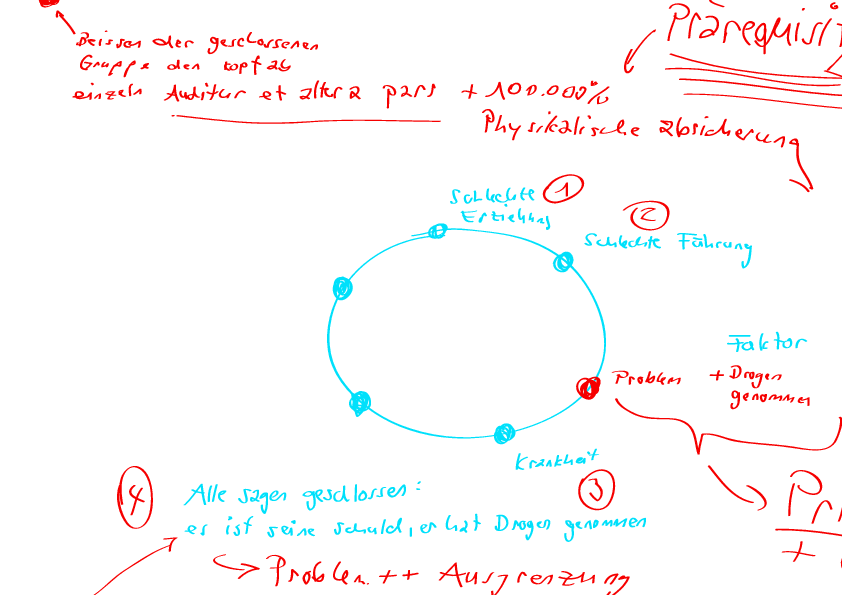 Beissen der geschlossenen
Gruppe den Kopf ab
einzeln Auditur et altera pars + 100.000%
Prärequisit
Physikalische absicherung
Schlechte
Erziehung
1
2
Schlechte Führung
Faktor
Problem + Drogen
genommen
Krankheit
3
4
Alle sagen geschlossen:
es ist seine schuld, er hat Drogen genommen
Problem ++ Ausgrenzung
Pr
+